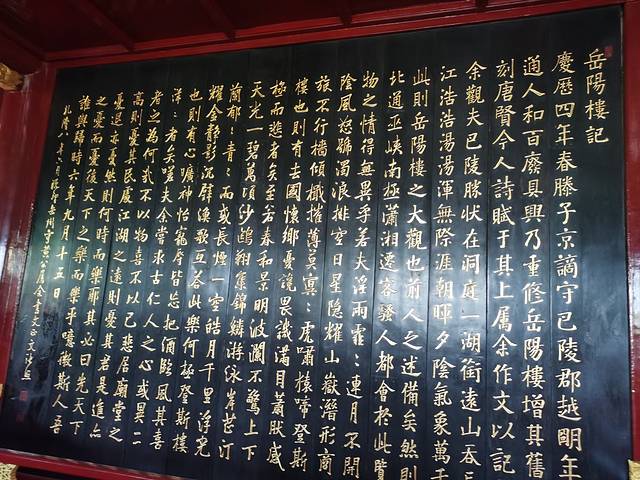 岳陽樓記
慶歷四年春滕子京謫守巴陵郡越朙年
通人和百廢具興乃重修岳陽樓增其舊
刻唐賢今人詩賦于其上屬余作文以記
余觀夫巴陵勝狀在洞庭一湖銜遠山吞
江浩浩湯湯渾無際涯朝暉夕陰氣象萬千
此則岳陽樓之大觀也前人之述備矣然則
北通巫峽南極瀟湘遷客騷人都會於此覽
物之情得無異乎若夫淫雨霏〻連月不開
陰風怒號濁浪排空日星隱耀山嶽潛形商
旅不行檣傾楫摧薄莫冥〻虎嘯猿啼登斯
樓也則有去國懷鄉憂讒畏譏滿目蕭然感
極而悲者矣至若春和景明波瀾不驚上下
天光一碧萬頃沙鷗翔集錦鱗游泳岸芷汀
蘭郁〻青〻而或長煙一空皓月千里浮光
耀金靜影沉璧漁歌互答此樂何極登斯樓
也則有心曠神怡寵辱皆忘把酒臨風其喜
洋〻者矣嗟夫余嘗求古仁人之心或異二
者之為何哉不以物喜不以己悲居廟堂之
高則憂其民處江湖之遠則憂其君是進亦
憂退亦憂然則何時而樂耶其必曰先天下
之憂而憂後天下之樂而樂乎噫微斯人吾
誰與歸時六年九月十五日